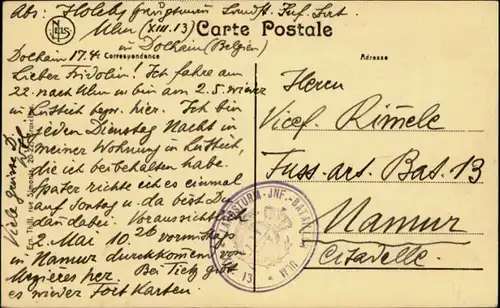 Abs: Landst. Inf. Bat.
Ulm (XIII. 13)
in Dolhain (Belgien)
Carte Postale
Correspondance
Adresse
Dolhain 17.4.
Lieber Fridolin! Ich fahre am
22. nach Ulm u bin am 2.5. wieder
in Lüttich bezw. hier. Ich bin
jeden Dienstag Nacht in
meiner Wohnung in Lüttich,
die ich beibehalten habe.
Später richte ich es einmal
auf Sonntag u. da bist Du
dan dabei. Voraussichtlich
Mai 10.26 vormittags
in Namur durchkommen von
Mezieres her. Bei Tietz gibt
es wieder Fort Karten.
Viele Grüsse D.
Herrn
Vicef. Rimele
Fuss-art. Bat. 13
Namur
Citadelle
LANDSTURM-INF.-BATAILLON
ULM
13